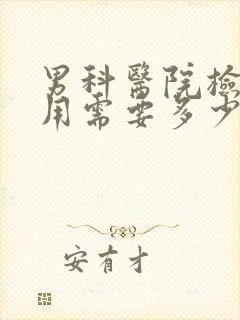 男科醫院檢
用需要多少
安有才